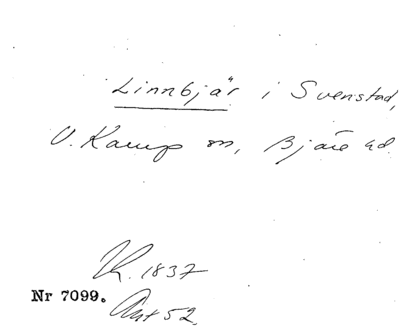 Linnbjär i Svenstad,
V. Karup sn, Bjäre hd.
K. 1837
Ant 52
Nr 7099.